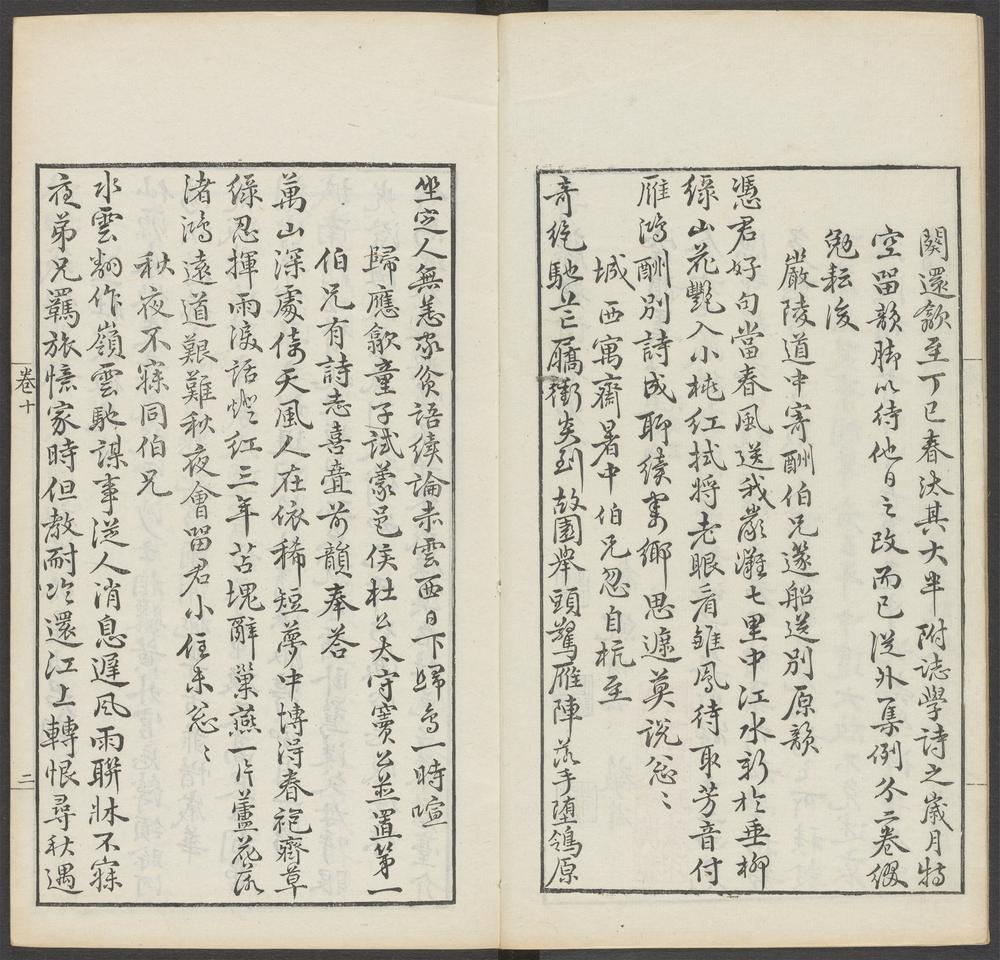 闕還歙至丁巳春汰其大半附誌學詩之歲月特
空留韻脚以待他日之改而已從外集例分二卷綴
勉耘後
嚴陵道中寄酬伯兄遂船送別原韻
憑君好句當春風送我嚴灘七里中江水新於垂柳
綠山花艷入小桃紅拭將老眼看雛鳳待取芳音付
雁鴻酬別詩成聊續寄鄉思遮莫說怱〻
城西寓齋暑中伯兄忽自杭至
奇絕馳𦬆衝炎到故園舉頭驚雁陣落手墮鴒原
坐定人無恙家貧語續論赤雲西日下歸鳥一時喧
歸應歙童子試蒙邑侯杜公太守竇公並置第一
伯兄有詩志喜疊前韻奉答
萬山深處倚天風人在依稀短夢中博得春袍齊草
綠忍揮雨淚話燈紅三年苫塊辭巢燕一片蘆花落
渚鴻遠道艱難秋夜會留君小住未怱〻
秋夜不寐同伯兄
水雲翻作嶺雲馳謀事從人消息遲風雨聯牀不寐
夜弟兄羈旅憶家時但教耐冷還江上轉恨尋秋遇
卷十
二